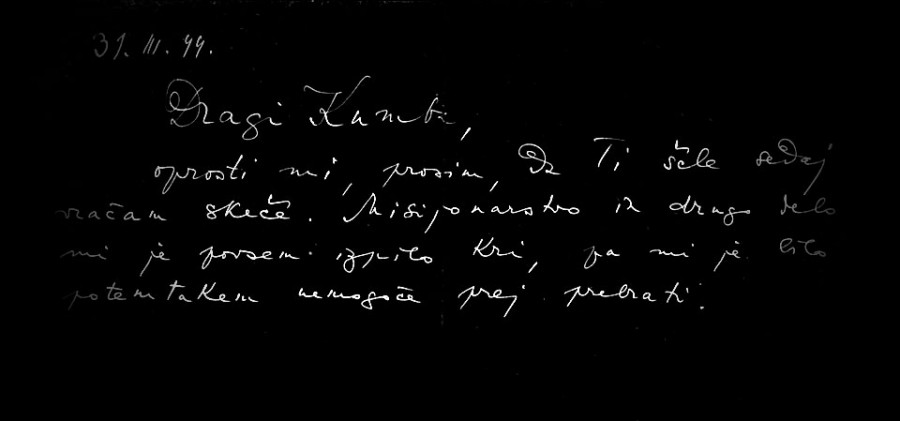 31. III. 44.
Dragi Kumbi,
oprosti mi, prosim, da Ti šele sedaj
vračam skeče. Misijonarstvo in drugo delo
mi je povsem izpilo kri, pa mi je bilo
potemtakem nemogoče prej prebrati.